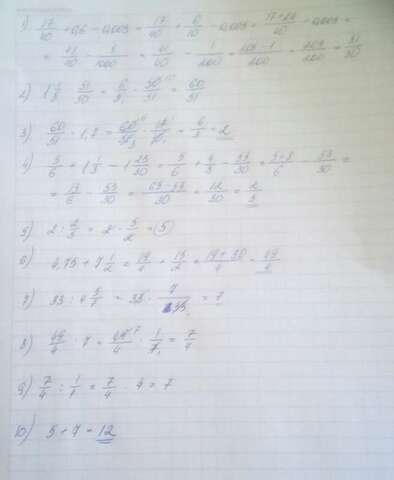 1) 17/40 + 0,6 - 0,005 = 17/40 + 6/10 - 0,005 = (17+24)/40 - 0,005 =
= 41/40 - 5/1000 = 41/40 - 1/200 = (205-1)/200 = 204/200 = 51/50
2) 51/50 = 6/5 · 50/51 = 60/51
3) 60/51 · 1,7 = 60/51 · 17/10 = 6/3 = 2
4) 5/6 + 1 1/3 - 1 23/30 = 5/6 + 4/3 - 53/30 = (5+8)/6 - 53/30 =
= 13/6 - 53/30 = (65-53)/30 = 12/30 = 2/5
5) 2 : 2/5 = 2 · 5/2 = 5
6) 4,75 + 7 1/2 = 19/4 + 15/2 = (19+30)/4 = 49/4
7) 33 : 4 5/7 = 33 · 7/33 = 7
8) 49/4 : 7 = 49/4 · 1/7 = 7/4
9) 7/4 : 1/4 = 7/4 · 4 = 7
10) 5 + 7 = 12